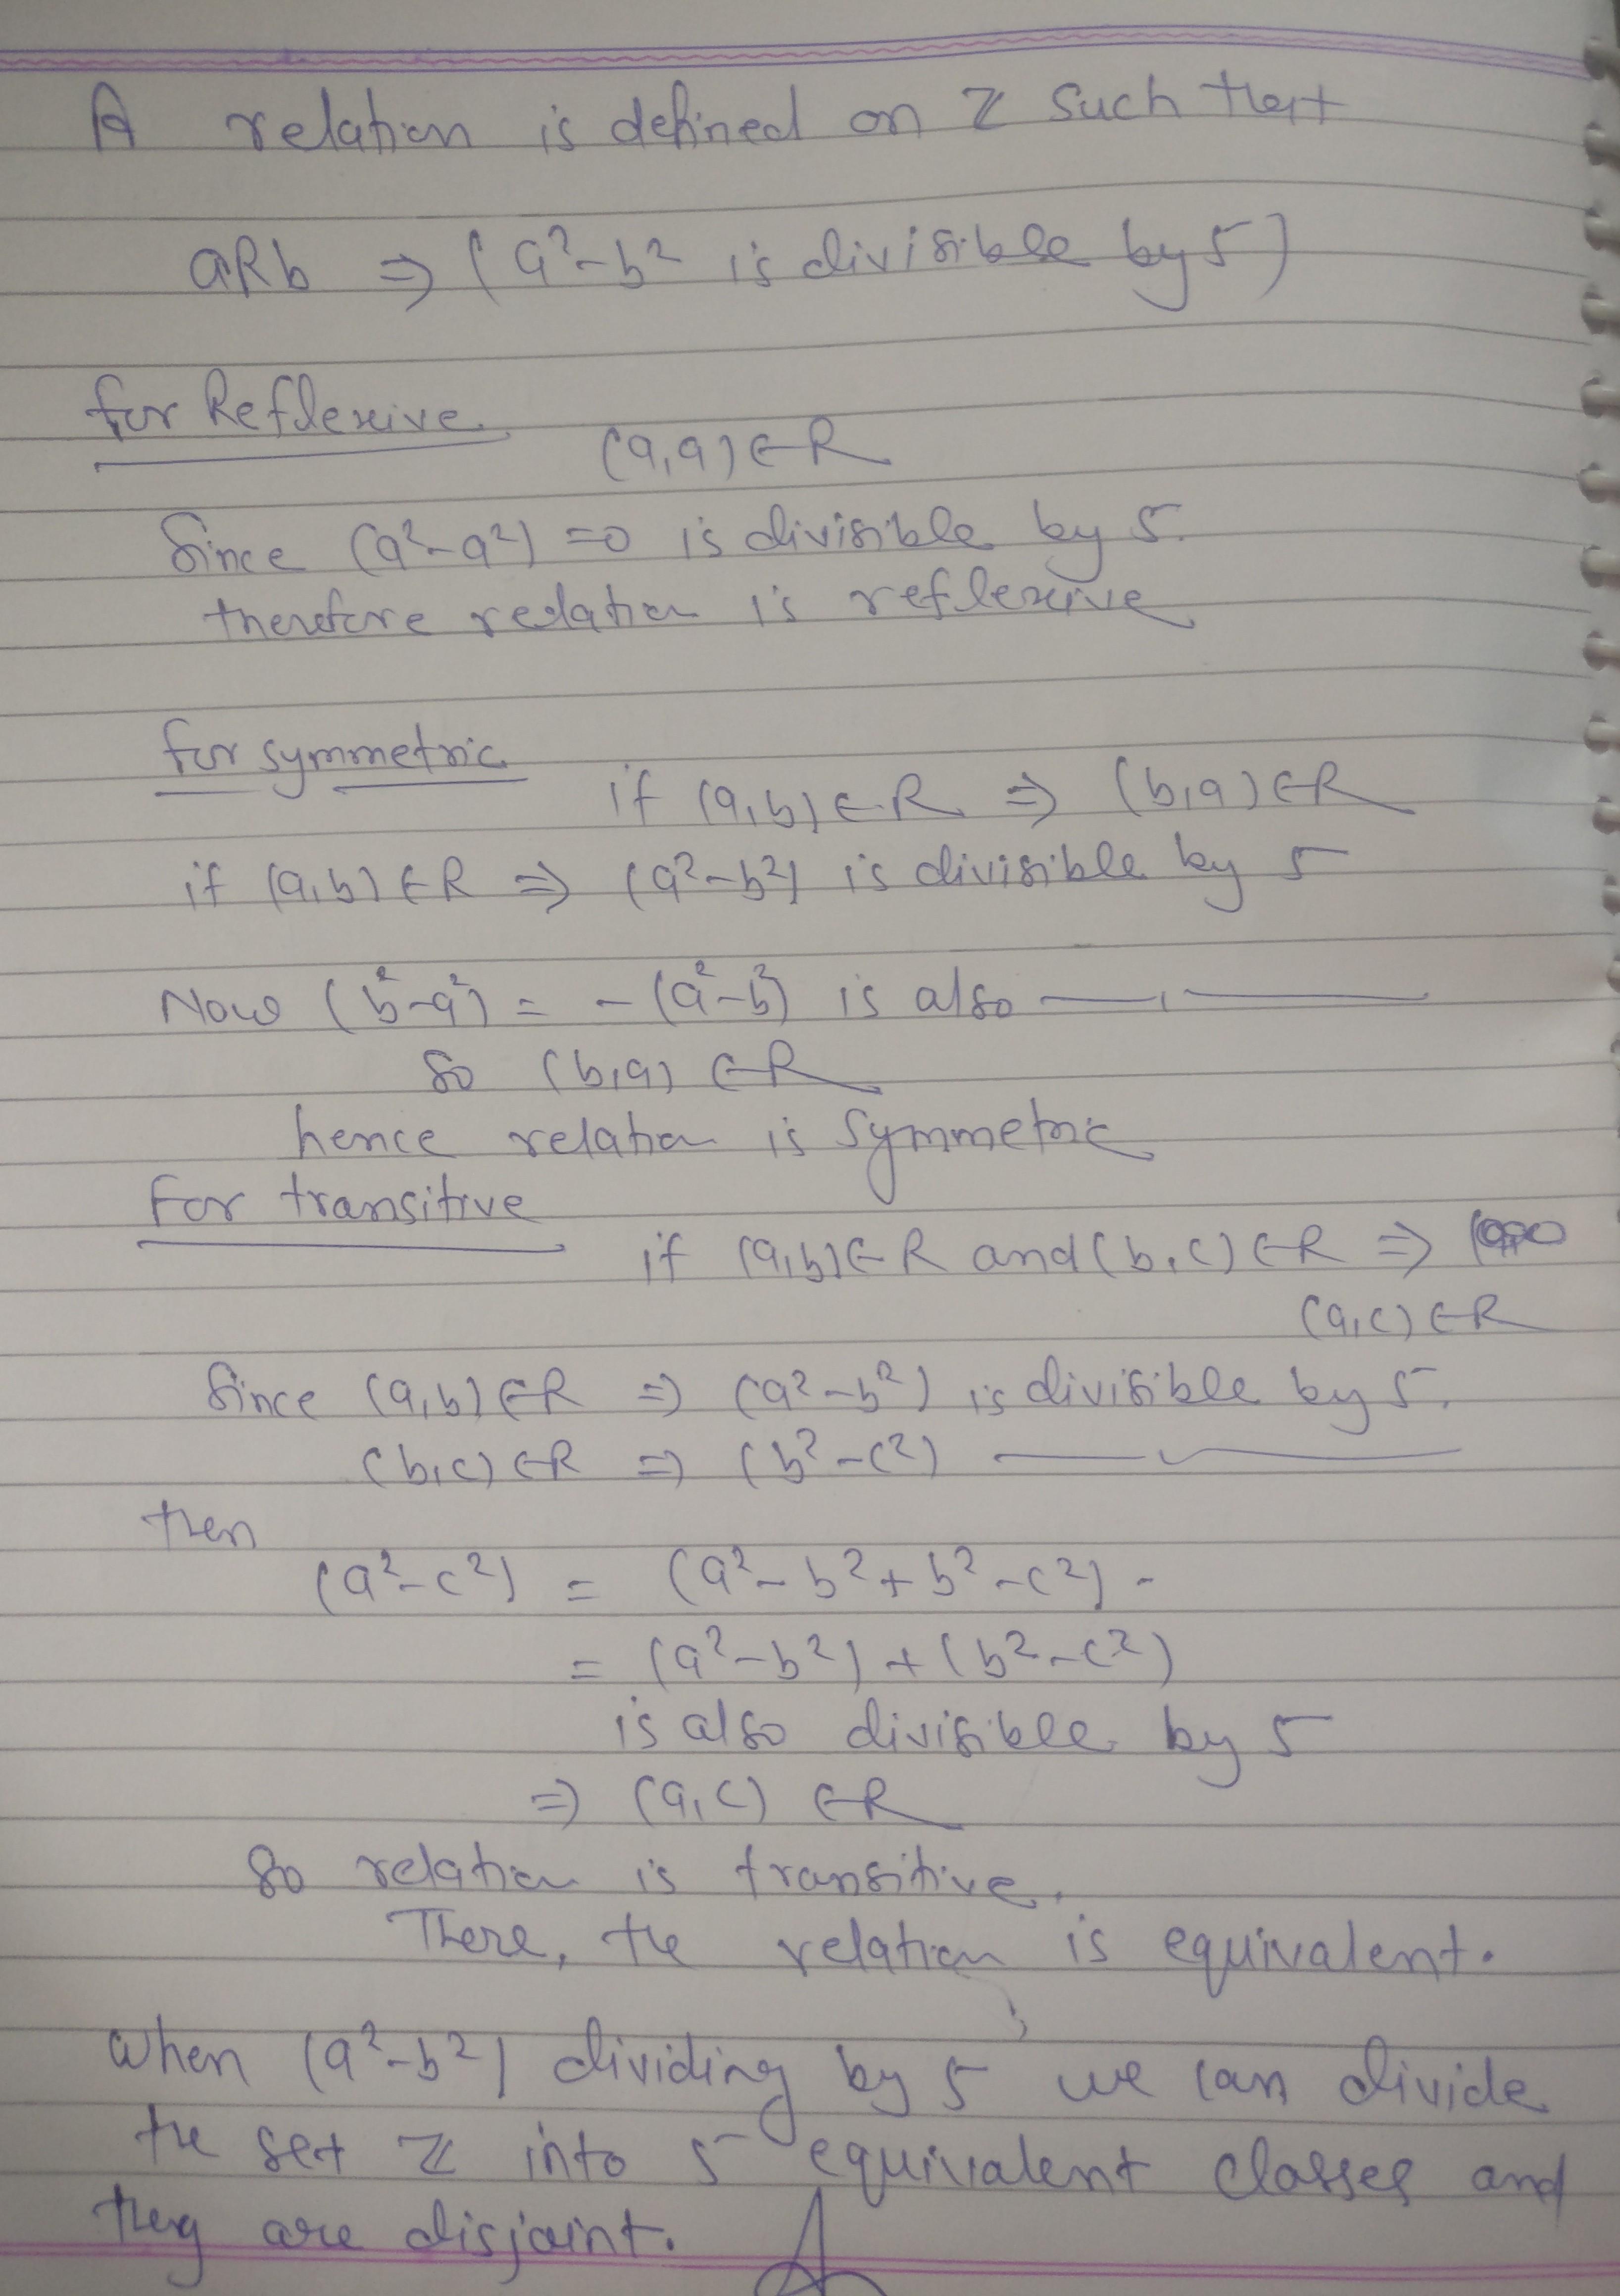 A relation is defined on Z such that
aRb ⇒ (a²-b² is divisible by 5)
for Reflexive
(a,a)∈R
Since (a²-a²) =0 is divisible by 5.
therefore relation is reflexive
for symmetric
if (a,b)∈R ⇒ (b,a)∈R
if (a,b)∈R ⇒ (a²-b²) is divisible by 5
Now (b²-a²) = -(a²-b²) is also —〃—
So (b,a) ∈R
hence relation is Symmetric
For transitive
if (a,b)∈R and (b,c)∈R ⇒
(a,c)∈R
Since (a,b)∈R ⇒ (a²-b²) is divisible by 5.
(b,c)∈R ⇒ (b²-c²) —〃—
then
(a²-c²) = (a²-b²+b²-c²) -
= (a²-b²)+(b²-c²)
is also divisible by 5
⇒ (a,c) ∈R
So relation is transitive.
There, the relation is equivalent.
When (a²-b²) dividing by 5 we can divide
the set Z into 5 equivalent classes and
they are disjoint.